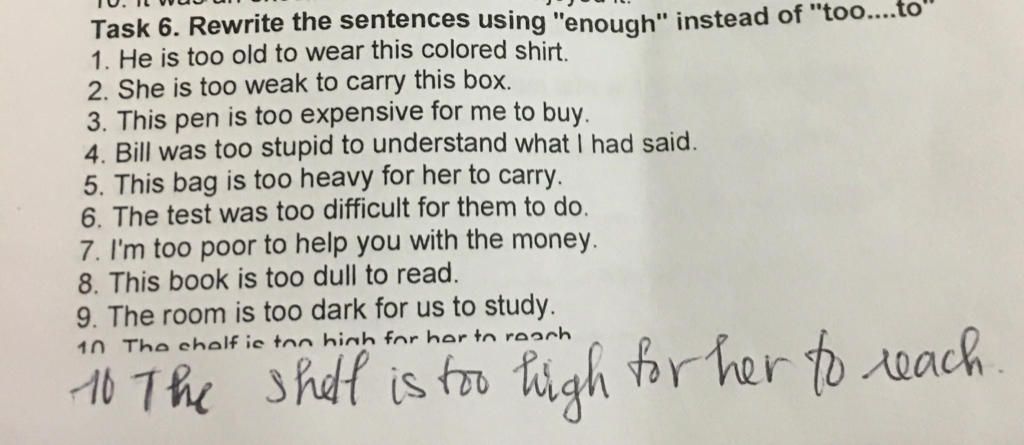 Task 6. Rewrite the sentences using "enough" instead of "too....to"
1. He is too old to wear this colored shirt.
2. She is too weak to carry this box.
3. This pen is too expensive for me to buy.
4. Bill was too stupid to understand what I had said.
5. This bag is too heavy for her to carry.
6. The test was too difficult for them to do.
7. I'm too poor to help you with the money.
8. This book is too dull to read.
9. The room is too dark for us to study.
10 The shelf is too high for her to reach
10 The shelf is too high for her to reach.